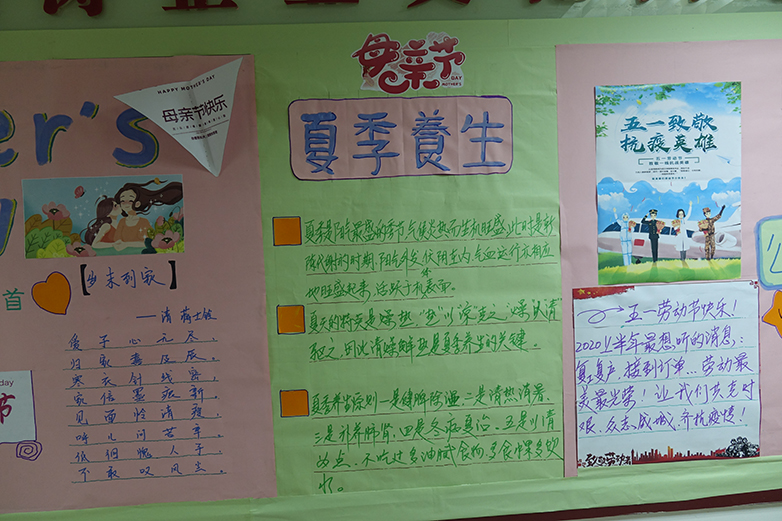 er's
HAPPY MOTHER'S DAY
母亲节快乐
首
【岁末到家】
——清 蒋士铨
爱子心无尽，
归家喜及辰。
寒衣针线密，
家信墨痕新。
见面怜清瘦，
呼儿问苦辛。
低徊愧人子，
不敢叹风尘。
day
节
母亲节
MOTHER'S DAY
夏季養生
夏季是阳气最盛的季节，气候炎热而生机旺盛，此时是新
陈代谢的时期，阳气外发，伏阴在内，气血运行亦相应
地旺盛起来，活跃于机体表面。
夏天的特点是燥热，"热"以"凉"克之，"燥"以"清"
驱之，因此清燥解热是夏季养生的关键。
夏季养生原则一是健脾除湿，二是清热消暑，
三是补养肺肾，四是冬病夏治，五是以清
为点，不吃过多油腻食物，多食水果多饮
水。
五一致敬
抗疫英雄
五一劳动节快乐！
2020上半年最想听的消息：
复工复产，接到订单…劳动最
美最光荣！让我们共克时
艰、众志成城、齐抗疫情！